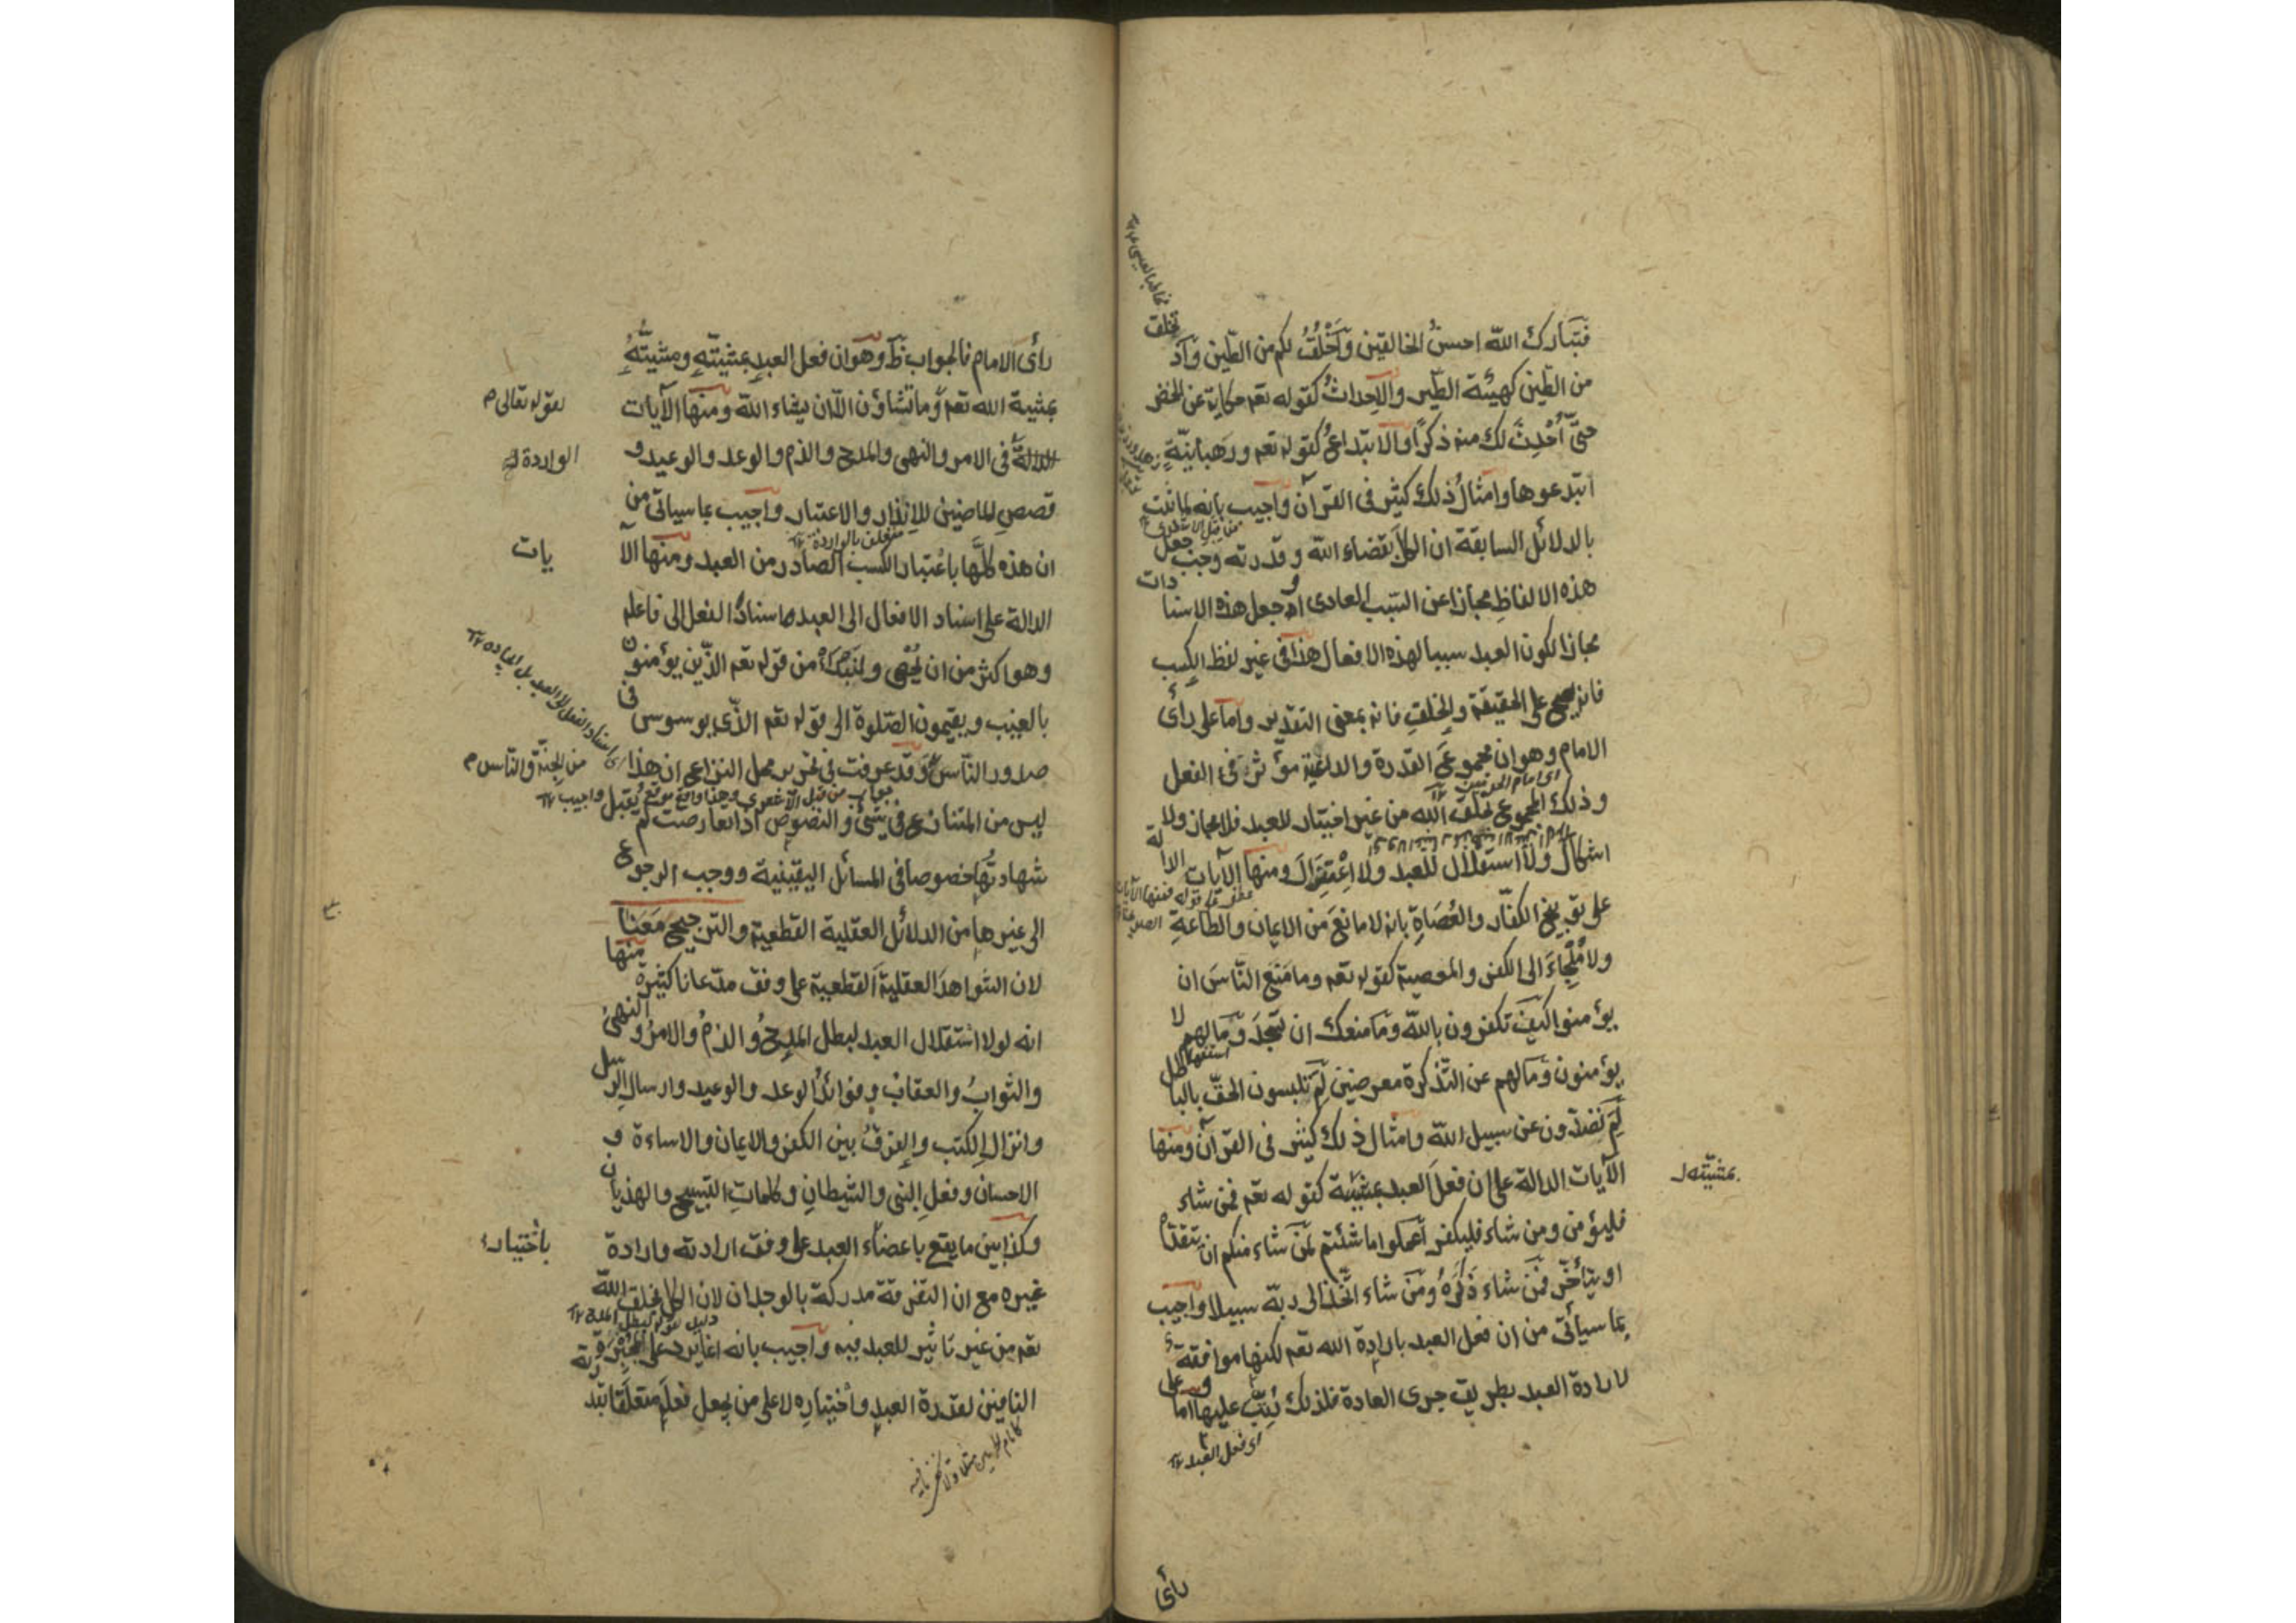 فتبارك الله احسن الخالقين وأخلق لكم من الطين واذ تخلق
من الطين كهيئة الطير والاحداث كقوله تعم حكاية عن الخضر
حتى أحدث لك منه ذكرا والابتداع كقوله تعم ورهبانية
ابتدعوها وامثال ذلك كثير فى القرآن واجيب بانه لما ثبت
بالدلائل السابقة ان الكل بقضاء الله وقدرته وجب جعل
هذه الالفاظ مجازا عن التسبب العادى او جعل هذه الاسنا دات
مجازا لكون العبد سببا لهذه الافعال هذا فى غير لفظ الكسب
فانه يصح على الحقيقة والخلق فانه بمعنى التقدير واما على رأى
الامام وهو ان مجموع القدرة والداعية مؤثر فى الفعل
وذلك المجموع بخلق الله من غير اختيار للعبد فلا مجاز ولا
اشكال ولا استقلال للعبد ولا اعتزال ومنها الآيات الدالة
على توبيخ الكفار والعصاة بانه لا مانع من الايمان والطاعة
ولا ملجاء الى الكفر والمعصية كقوله تعم وما منع الناس ان
يؤمنوا كيف تكفرون بالله وما منعك ان تسجد وما لهم لا
يؤمنون وما لهم عن التذكرة معرضين لم تلبسون الحق بالباطل
لم تصدون عن سبيل الله وامثال ذلك كثير فى القرآن ومنها
الآيات الدالة على ان فعل العبد بمشيئة كقوله تعم فمن شاء
بمشيته
فليؤمن ومن شاء فليكفر اعملوا ما شئتم لمن شاء منكم ان يتقدم
او يتأخر فمن شاء ذكره ومن شاء اتخذ الى ربه سبيلا واجيب
بما سيأتى من ان فعل العبد بارادة الله تعم لكنها موافقة
لارادة العبد بطريق جرى العادة فلذلك رتب عليها اما وعلى
اى فعل العبد
رأى
رأى الامام فالجواب ظ وهو ان فعل العبد بمشيته ومشيته
بمشية الله تعم وما تشاؤن الا ان يشاء الله ومنها الآيات
لقوله تعالى
الدالة فى الامر والنهى والمدح والذم والوعد والوعيد و
الواردة
قصص الماضين للانذار والاعتبار واجيب بما سياتى من
متعلق بالواردة
ان هذه كلها باعتبار الكسب الصادر من العبد ومنها الآ يات
الدالة على اسناد الافعال الى العبد اسناد الفعل الى فاعله
وهو اكثر من ان يحصى ولنبدأ من قوله تعم الذين يؤمنون
بالغيب ويقيمون الصلوة الى قوله تعم الذى يوسوس فى
صدور الناس وقد عرفت فى تحرير محل النزاع ان هذا
من الجنة والناس
ليس من المتنازع فى شئ والنصوص اذا تعارضت لم يقبل
شهادتها خصوصا فى المسائل اليقينية ووجب الرجوع
الى غيرها من الدلائل العقلية القطعية والترجيح معنا
لان الشواهد العقلية القطعية على وفق مدعانا كثيرة منها
انه لولا استقلال العبد لبطل المدح والذم والامر والنهى
والثواب والعقاب وفوائد الوعد والوعيد وارسال الرسل
وانزال الكتب والفرق بين الكفر والايمان والاساءة و
الاحسان وفعل النبى والشيطان وكلمات التسبيح والهذيان
وكذا بين ما يقع باعضاء العبد على وفق ارادته وارادة
باختياره
غيره مع ان التفرقة مدركة بالوجدان لان الكل بخلق الله
تعم من غير تاثير للعبد فيه واجيب بانه انما يرد على المجبرة
النافين لقدرة العبد واختياره لا على من يجعل فعله متعلقا بقد رته